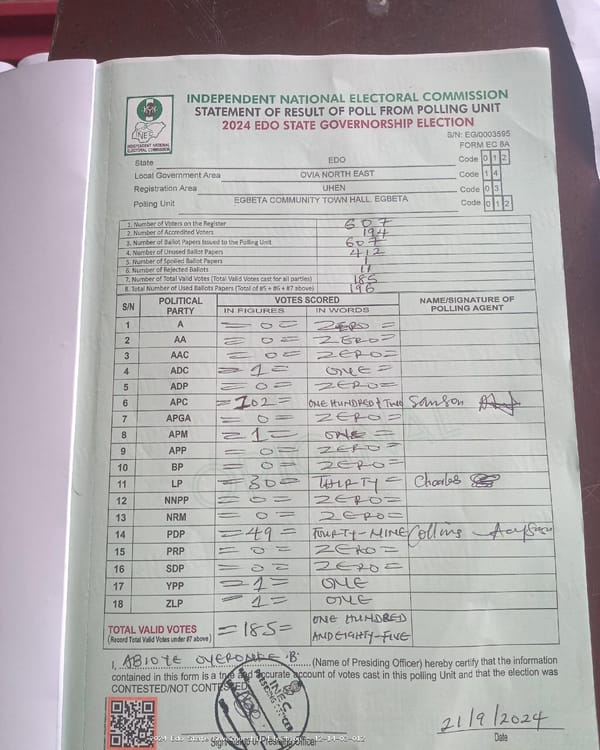 INDEPENDENT NATIONAL ELECTORAL COMMISSION
STATEMENT OF RESULT OF POLL FROM POLLING UNIT
2024 EDO STATE GOVERNORSHIP ELECTION
INEC
INDEPENDENT NATIONAL ELECTORAL COMMISSION
S/N: EG/0003595
FORM EC 8A
State EDO Code 0 1 2
Local Government Area OVIA NORTH EAST Code 1 4
Registration Area UHEN Code 0 3
Polling Unit EGBETA COMMUNITY TOWN HALL. EGBETA Code 0 1 2
1. Number of Voters on the Register 607
2. Number of Accredited Voters 194
3. Number of Ballot Papers Issued to the Polling Unit 607
4. Number of Unused Ballot Papers 412
5. Number of Spoiled Ballot Papers 1
6. Number of Rejected Ballots 11
7. Number of Total Valid Votes (Total Valid Votes cast for all parties) 185
8. Total Number of Used Ballots Papers (Total of #5 + #6 + #7 above) 196
S/N POLITICAL PARTY VOTES SCORED NAME/SIGNATURE OF POLLING AGENT
IN FIGURES IN WORDS
1 A =0= ZERO=
2 AA =0= ZERO=
3 AAC =0= ZERO=
4 ADC =1= ONE=
5 ADP =0= ZERO=
6 APC =102= ONE HUNDRED & TWO Samson
7 APGA =0= ZERO=
8 APM =1= ONE=
9 APP =0= ZERO=
10 BP =0= ZERO=
11 LP =30= THIRTY= Charles
12 NNPP =0= ZERO=
13 NRM =0= ZERO=
14 PDP =49= FOURTY-NINE Collins
15 PRP =0= ZERO=
16 SDP =0= ZERO=
17 YPP =1= ONE
18 ZLP =1= ONE
TOTAL VALID VOTES =185= ONE HUNDRED
(Record Total Valid Votes under #7 above) AND EIGHTY-FIVE
I, ABIOYE OYERONKE .B. (Name of Presiding Officer) hereby certify that the information
contained in this form is a true and accurate account of votes cast in this polling unit and that the election was
CONTESTED/NOT CONTESTED
INEC
21/9/2024
Date